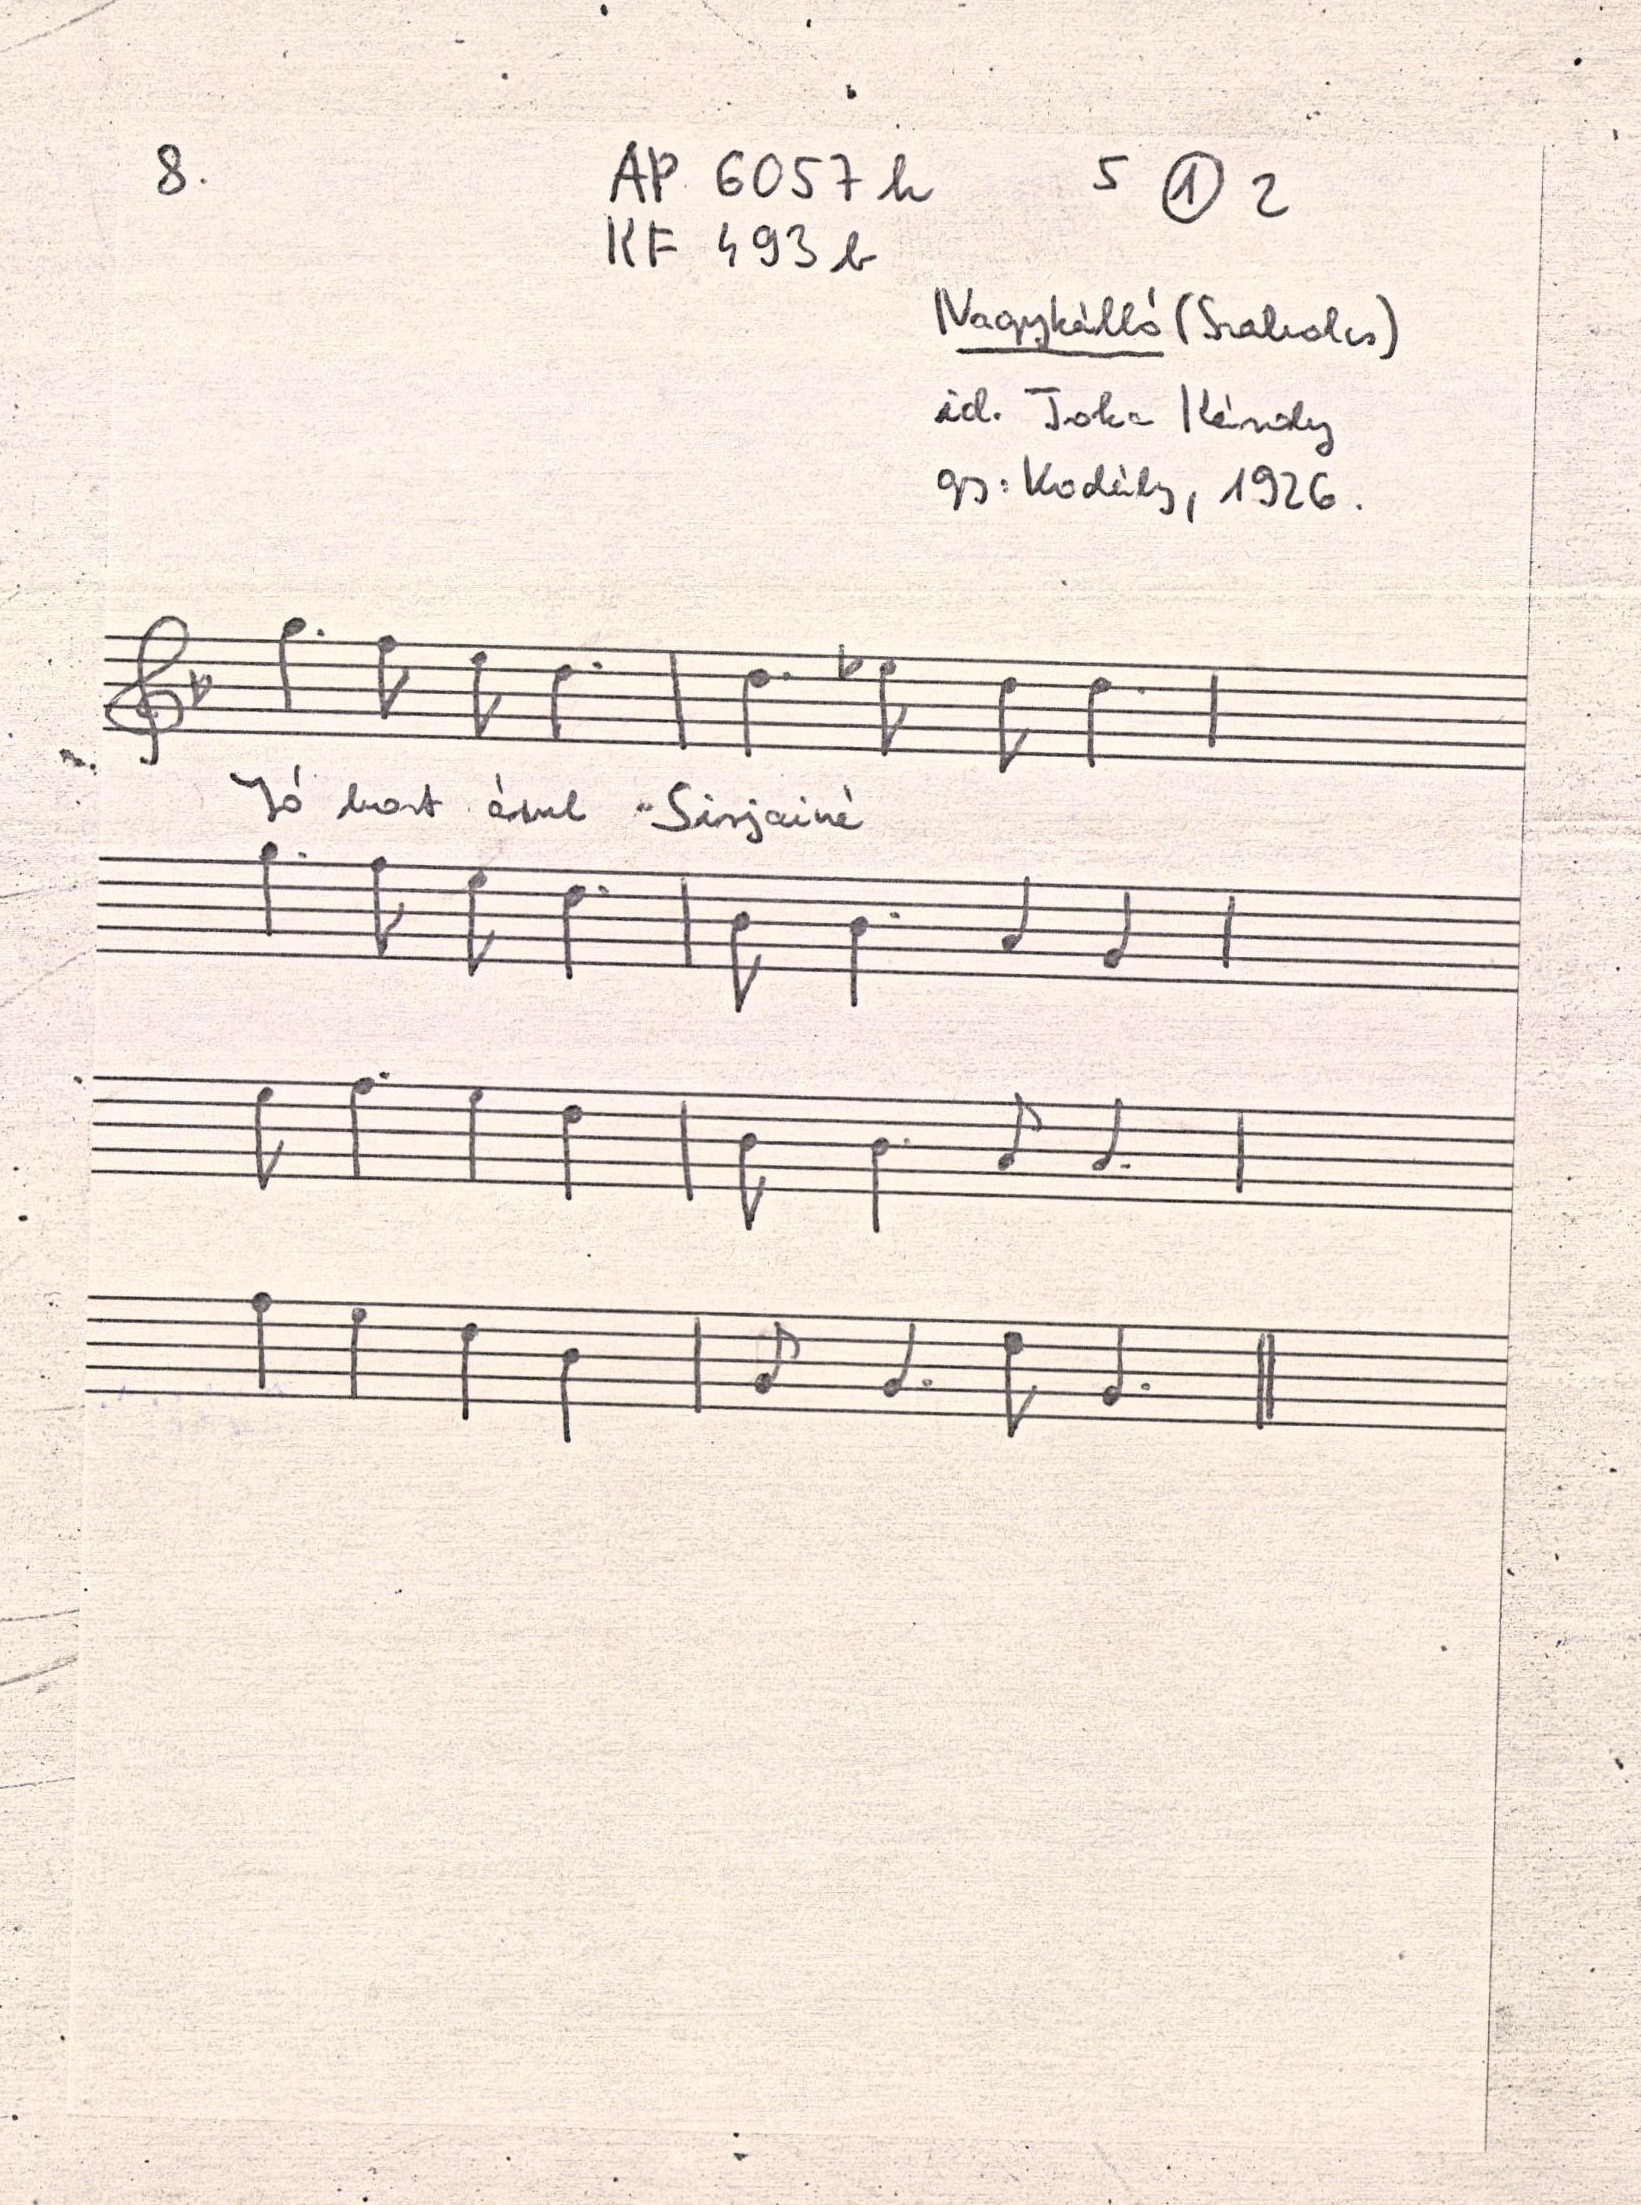 8. AP 6057 h 5 1 2
KF 493 b
Nagykálló (Szabolcs)
id. Toka Károly
gy: Kodály, 1926.
Jó bort árul Sirjainé